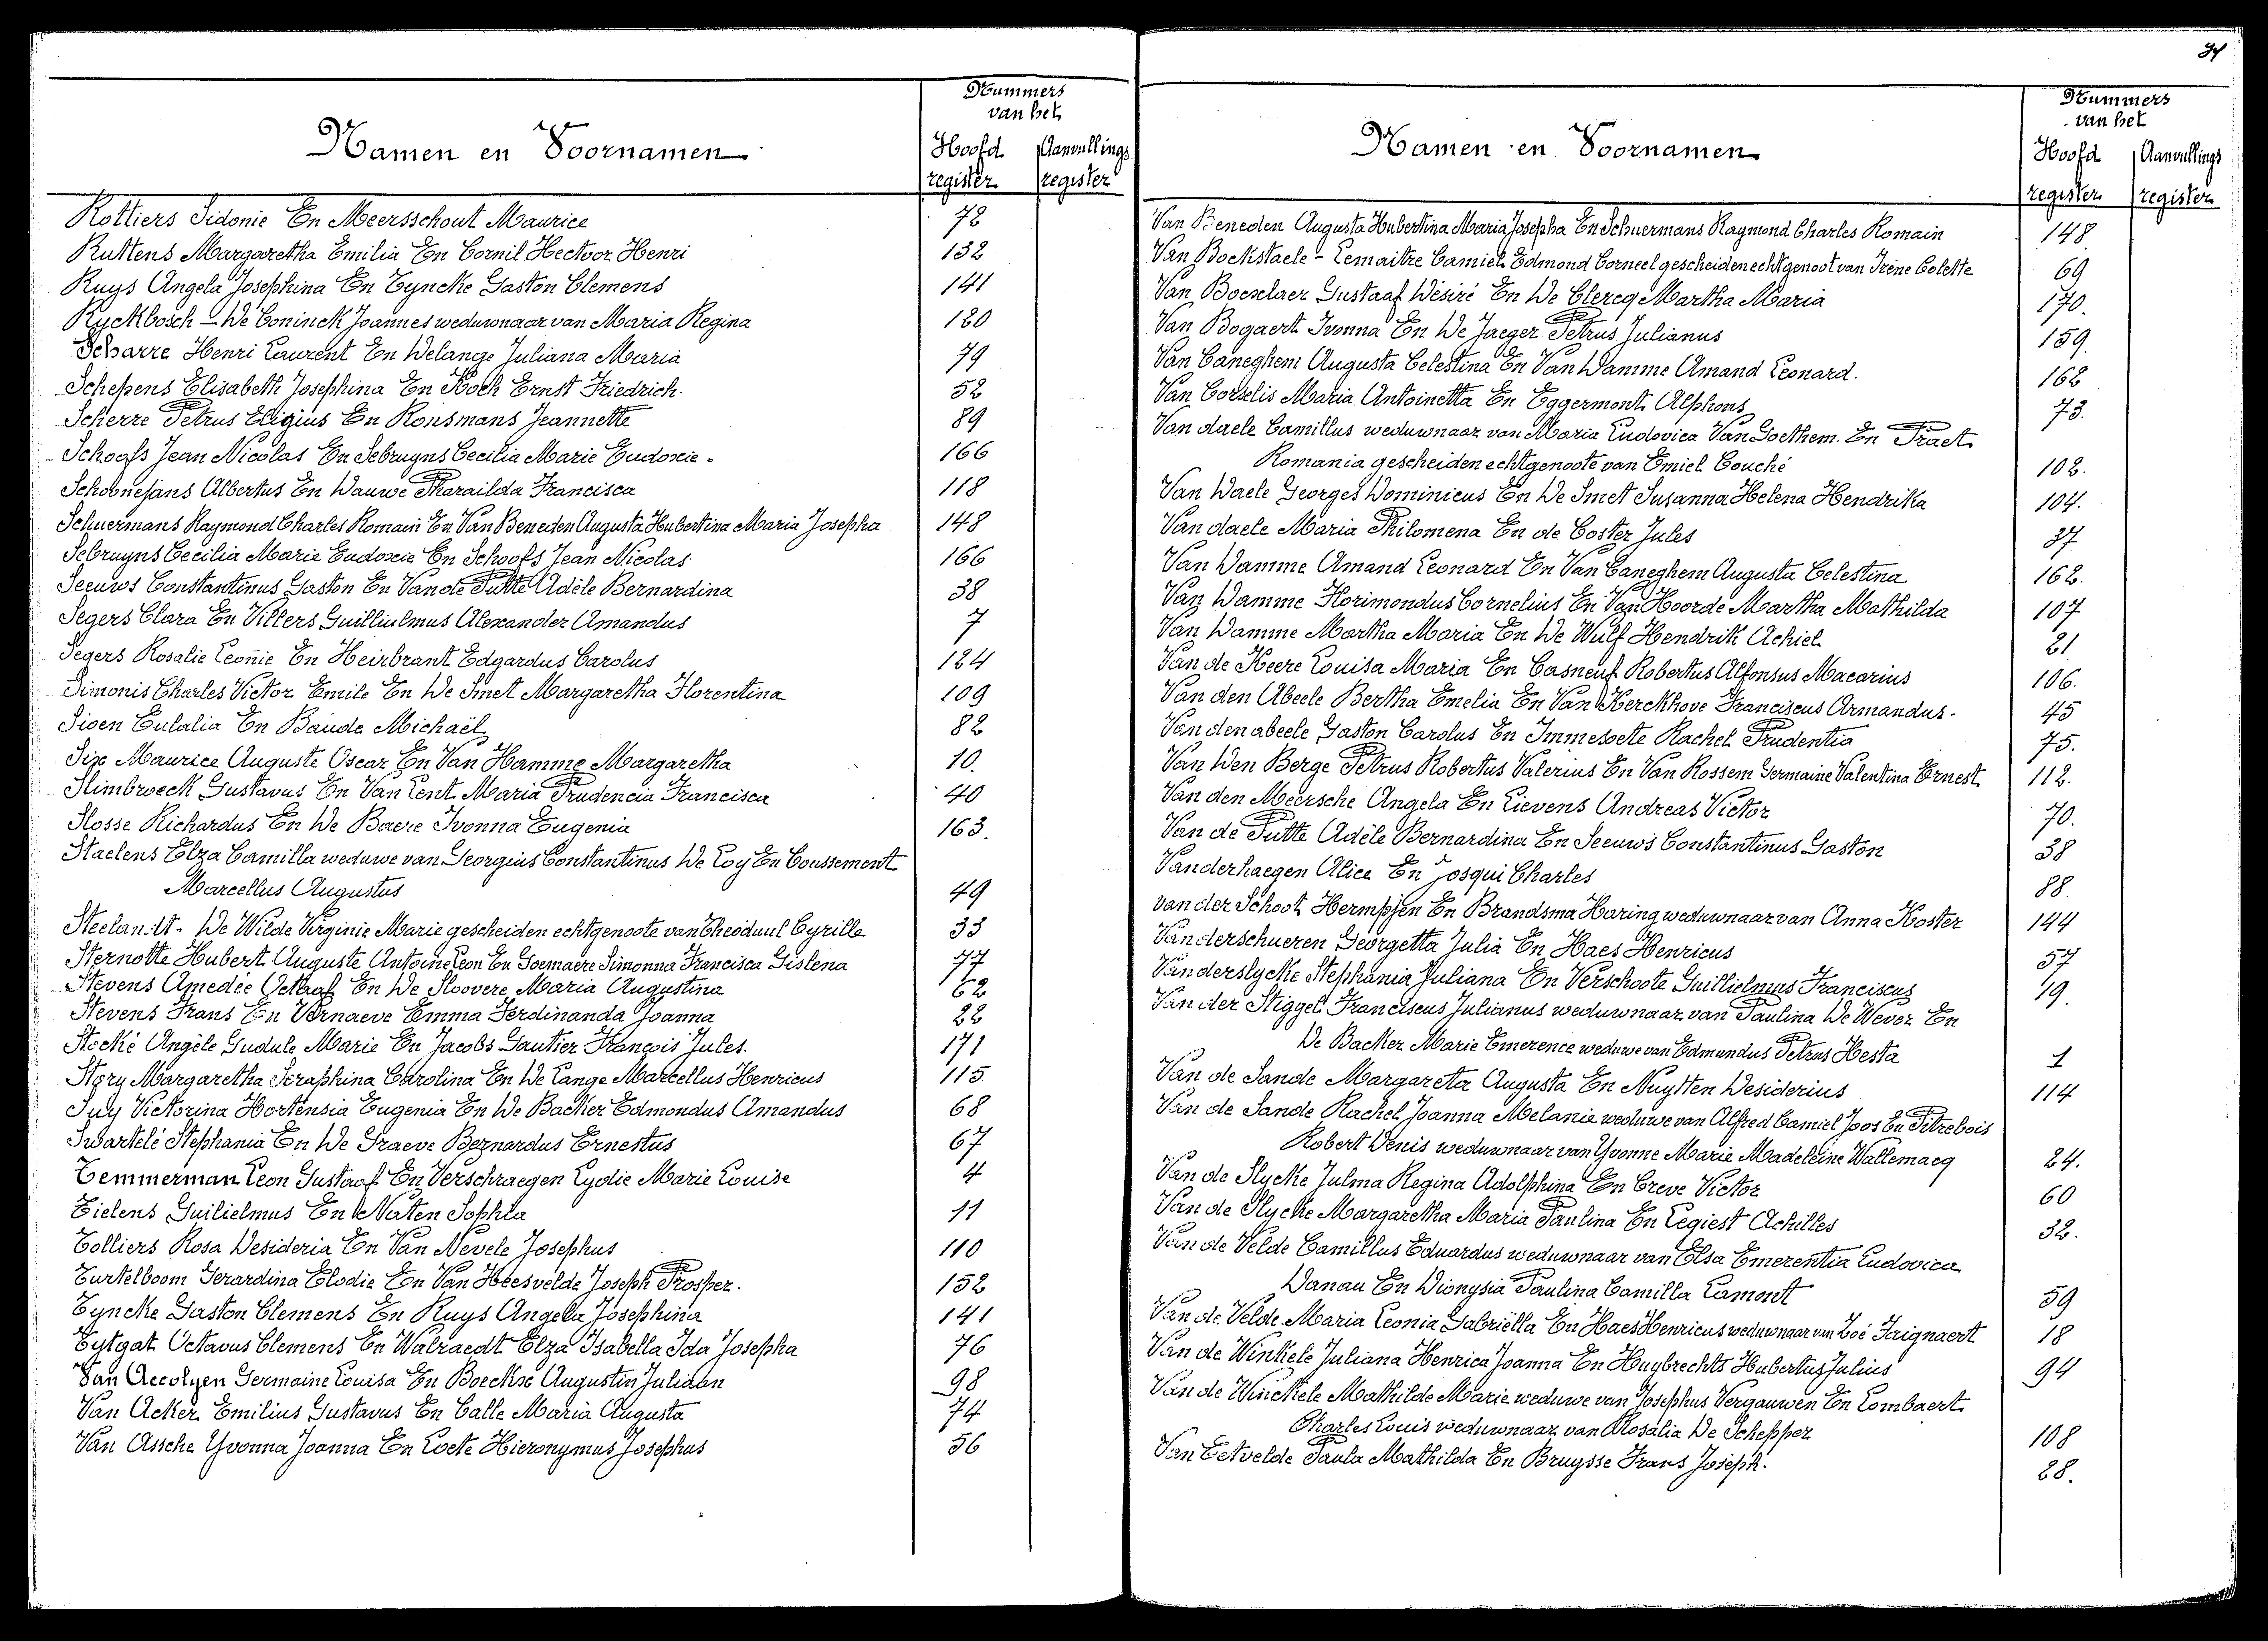 Nummers
van het
Namen en Voornamen
Hoofd Aanvullings
register register
Rottiers Sidonie En Meersschout Maurice 72
Ruttens Margaretha Emilia En Cornil Hectoor Henri 132
Ruys Angela Josephina En Tyncke Gaston Clemens 141
Ryckbosch - De Coninck Joannes weduwnaar van Maria Regina 120
Scharre Henri Laurent En Delange Juliana Maria 79
Schepens Elisabeth Josephina En Koch Ernst Friedrich. 52
Scherre Petrus Eligius En Ronsmans Jeannette 89
Schoofs Jean Nicolas En Sebruyns Cecilia Marie Eudoxie. 166
Schoonejans Albertus En Dauwe Pharailda Francisca 118
Schuermans Raymond Charles Romain En Van Beneden Augusta Hubertina Maria Josepha 148
Sebruyns Cecilia Marie Eudoxie En Schoofs Jean Nicolas 166
Seeuws Constantinus Gaston En Van de Putte Adèle Bernardina 38
Segers Clara En Villers Guilliulmus Alexander Amandus 7
Segers Rosalie Leonie En Heirbrant Edgardus Carolus 124
Simonis Charles Victor Emile En De Smet Margaretha Florentina 109
Sioen Eulalia En Baude Michaël 82
Six Maurice Auguste Oscar En Van Hamme Margaretha 10.
Slimbroeck Gustavus En Van Lent Maria Prudencia Francisca 40
Slosse Richardus En De Baere Ivonna Eugenia 163.
Staelens Elza Camilla weduwe van Georgius Constantinus De Loy En Coussement
Marcellus Augustus 49
Steelandt - De Wilde Virginie Marie gescheiden echtgenoote van Theoduul Cyrille 33
Sternotte Hubert Auguste Antoine Leon En Goemaere Simonna Francisca Gislena 77
Stevens Amedée Octaaf En De Sloovere Maria Augustina 62
Stevens Frans En Vernaeve Emma Ferdinanda Joanna 22
Stocké Angèle Gudule Marie En Jacobs Gautier François Jules. 171
Story Margaretha Seraphina Carolina En De Lange Marcellus Henricus 115
Suy Victorina Hortensia Eugenia En De Backer Edmondus Amandus 68
Swartelé Stephania En De Graeve Bernardus Ernestus 67
Temmerman Leon Gustaaf En Verschraegen Lydie Marie Louise 4
Tielens Guilielmus En Naten Sophia 11
Tolliers Rosa Desideria En Van Nevele Josephus 110
Turtelboom Gerardina Elodie En Van Heesvelde Joseph Prosper. 152
Tyncke Gaston Clemens En Ruys Angela Josephina 141
Tytgat Octavus Clemens En Walraedt Elza Isabella Ida Josepha 76
Van Accolyen Germaine Louisa En Boeckx Augustin Juliaan 98
Van Acker Emilius Gustavus En Calle Maria Augusta 74
Van Assche Yvonna Joanna En Loete Hieronymus Josephus 56
Nummers
van het
Namen en Voornamen
Hoofd Aanvullings
register register
Van Beneden Augusta Hubertina Maria Josepha En Schuermans Raymond Charles Romain 148
Van Bockstaele - Lemaitre Camiel Edmond Corneel gescheiden echtgenoot van Irène Colette 69
Van Boexlaer Gustaaf Désiré En De Clercq Martha Maria 170.
Van Bogaert Ivonna En De Jaeger Petrus Julianus 159.
Van Caneghem Augusta Celestina En Van Damme Amand Leonard. 162
Van Corselis Maria Antoinetta En Eggermont Alphons 73.
Van daele Camillus weduwnaar van Maria Ludovica Van Goethem. En Praet
Romania gescheiden echtgenoote van Emiel Couché 102.
Van Daele Georges Dominicus En De Smet Susanna Helena Hendrika 104.
Van daele Maria Philomena En de Coster Jules 37
Van Damme Amand Leonard En Van Caneghem Augusta Celestina 162.
Van Damme Florimondus Cornelius En Van Hoorde Martha Mathilda 107
Van Damme Martha Maria En De Wulf Hendrik Achiel 21
Van de Keere Louisa Maria En Casneuf Robertus Alfonsus Macarius 106.
Van den Abeele Bertha Emelia En Van Kerckhove Franciscus Armandus. 45
Van den abeele Gaston Carolus En Immesoete Rachel Prudentia 75.
Van Den Berge Petrus Robertus Valerius En Van Rossem Germaine Valentina Ernest 112.
Van den Meersche Angela En Lievens Andreas Victor 70.
Van de Putte Adèle Bernardina En Seeuws Constantinus Gaston 38
Vanderhaegen Alice En Josqui Charles 88.
van der Schoot Hermpjen En Brandsma Haring weduwnaar van Anna Koster 144
Vanderschueren Georgetta Julia En Haes Henricus 57
Vanderslycke Stephania Juliana En Verschoote Guillielmus Franciscus 19.
Van der Stiggel Franciscus Julianus weduwnaar van Paulina De Wever En
De Backer Marie Emerence weduwe van Edmundus Petrus Hesta 1
Van de Sande Margareta Augusta En Nuytten Desiderius 114
Van de Sande Rachel Joanna Melanie weduwe van Alfred Camiel Joos En Pitrebois
Robert Denis weduwnaar van Yvonne Marie Madeleine Wallemacq 24.
Van de Slycke Julma Regina Adolphina En Creve Victor 60
Van de Slycke Margaretha Maria Paulina En Legiest Achilles 32.
Van de Velde Camillus Eduardus weduwnaar van Elsa Emerentia Ludovica
Danau En Dionysia Paulina Camilla Lamont 59
Van de Velde Maria Leonia Gabriëlla En Haes Henricus weduwnaar van Zoé Frignaert 18
Van de Winkele Juliana Henrica Joanna En Huybrechts Hubertus Julius 94
Van de Winckele Mathilde Marie weduwe van Josephus Vergauwen En Lombaert
Charles Louis weduwnaar van Rosalia De Schepper 108
Van Eetvelde Paula Mathilda En Bruysse Frans Joseph. 28.